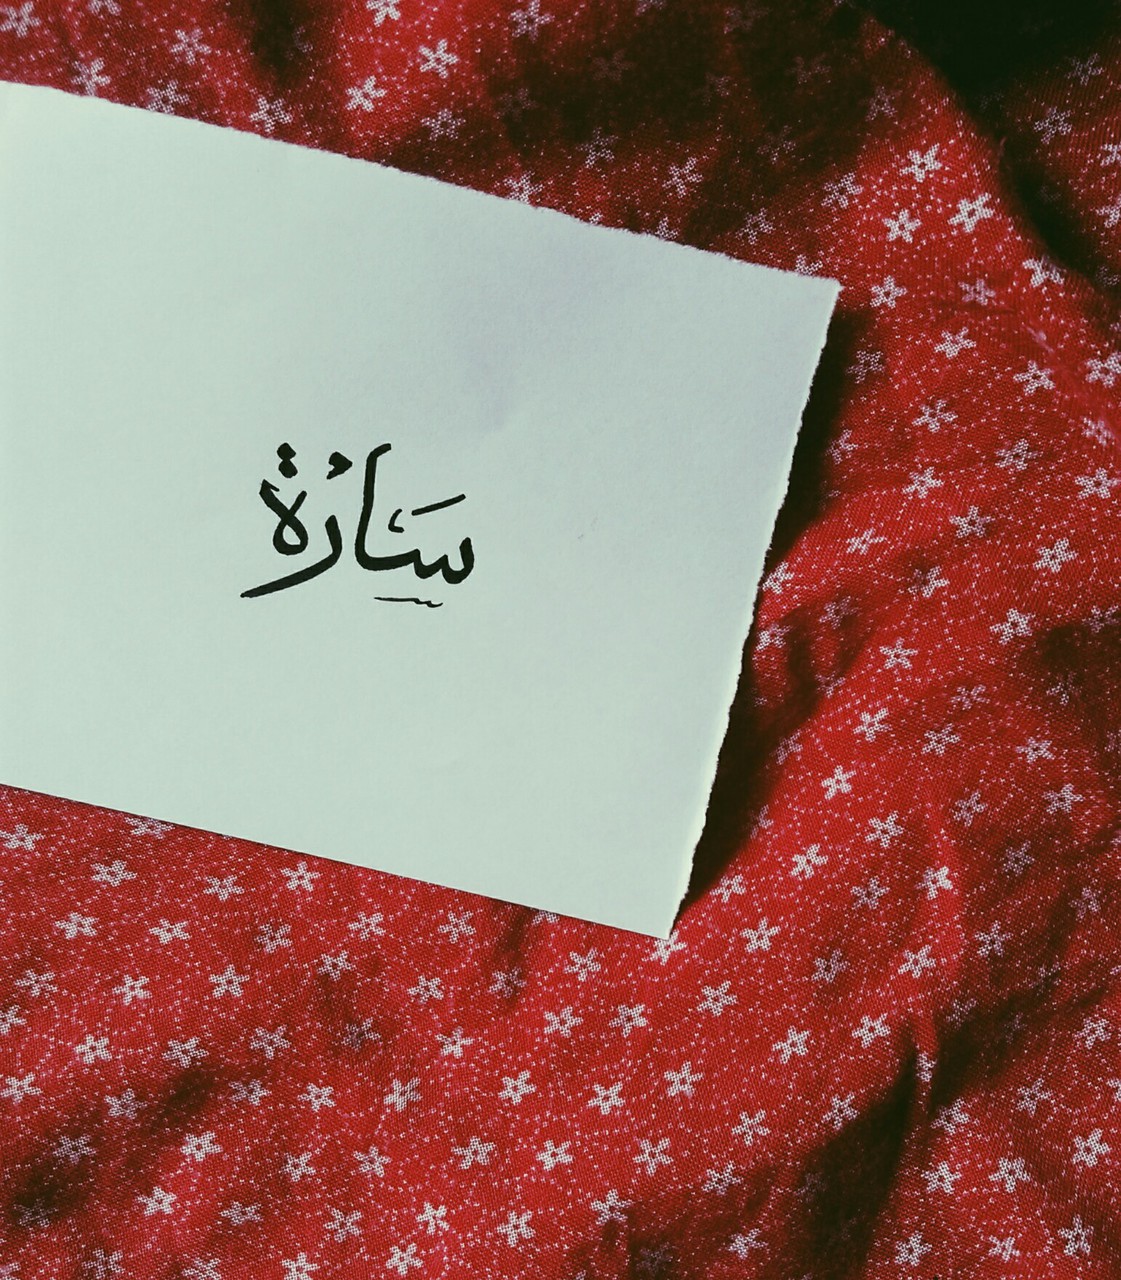 سارة